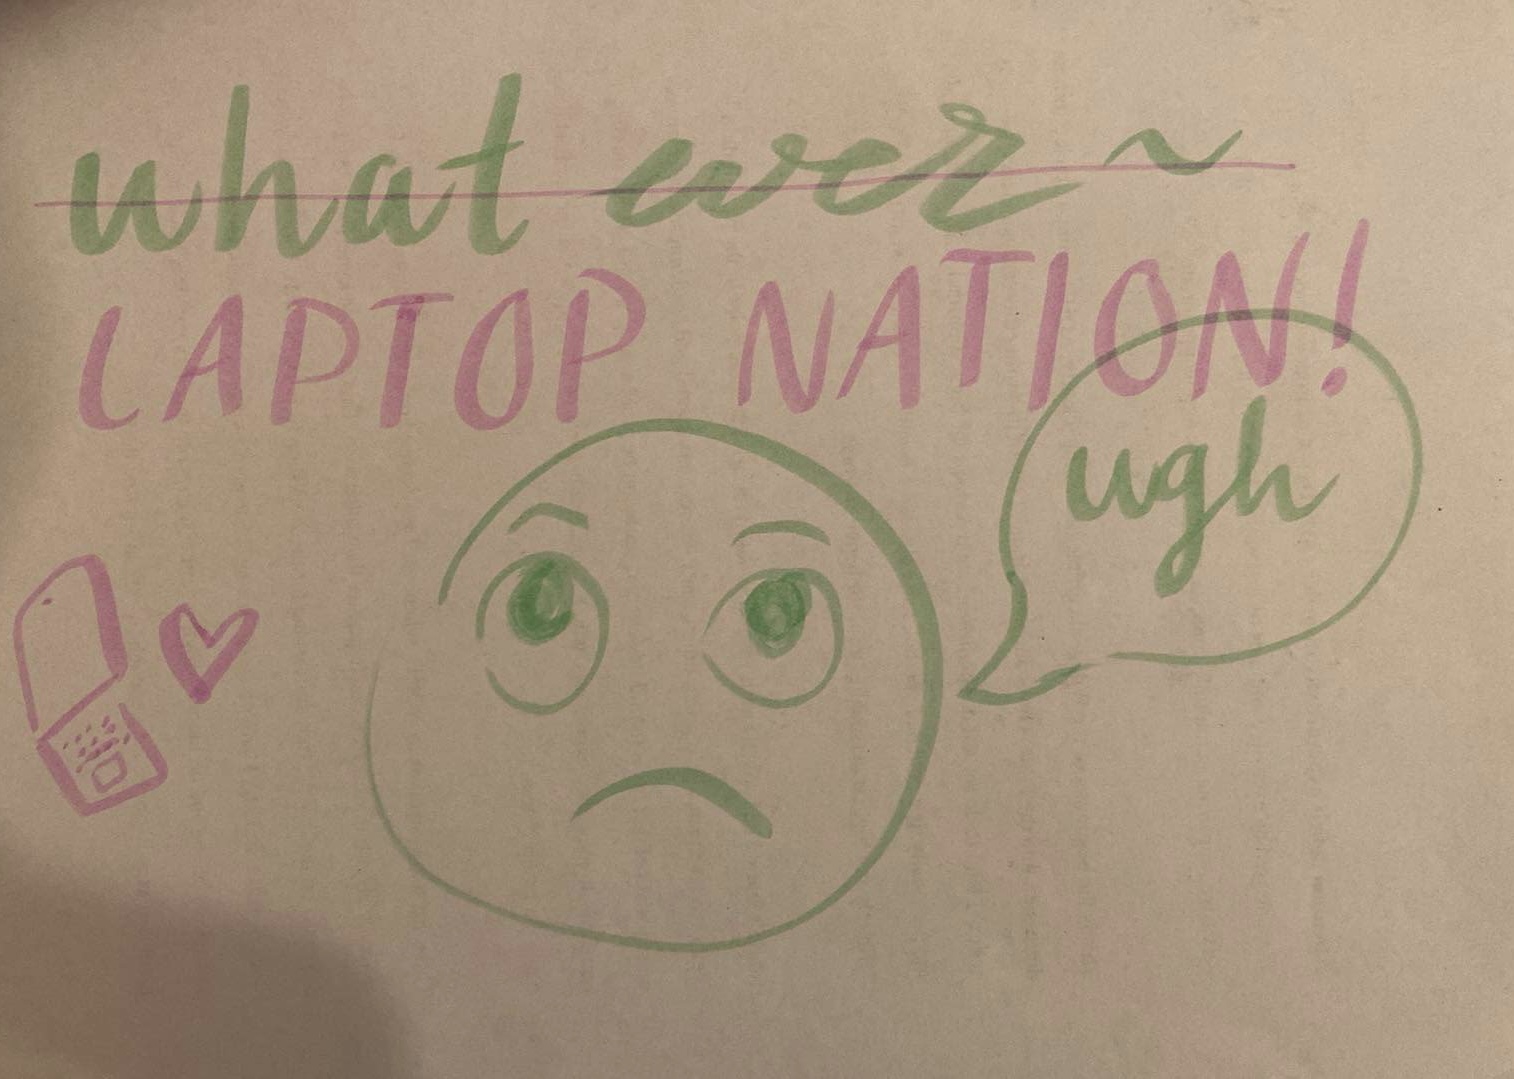 what ever ~
LAPTOP NATION!
ugh